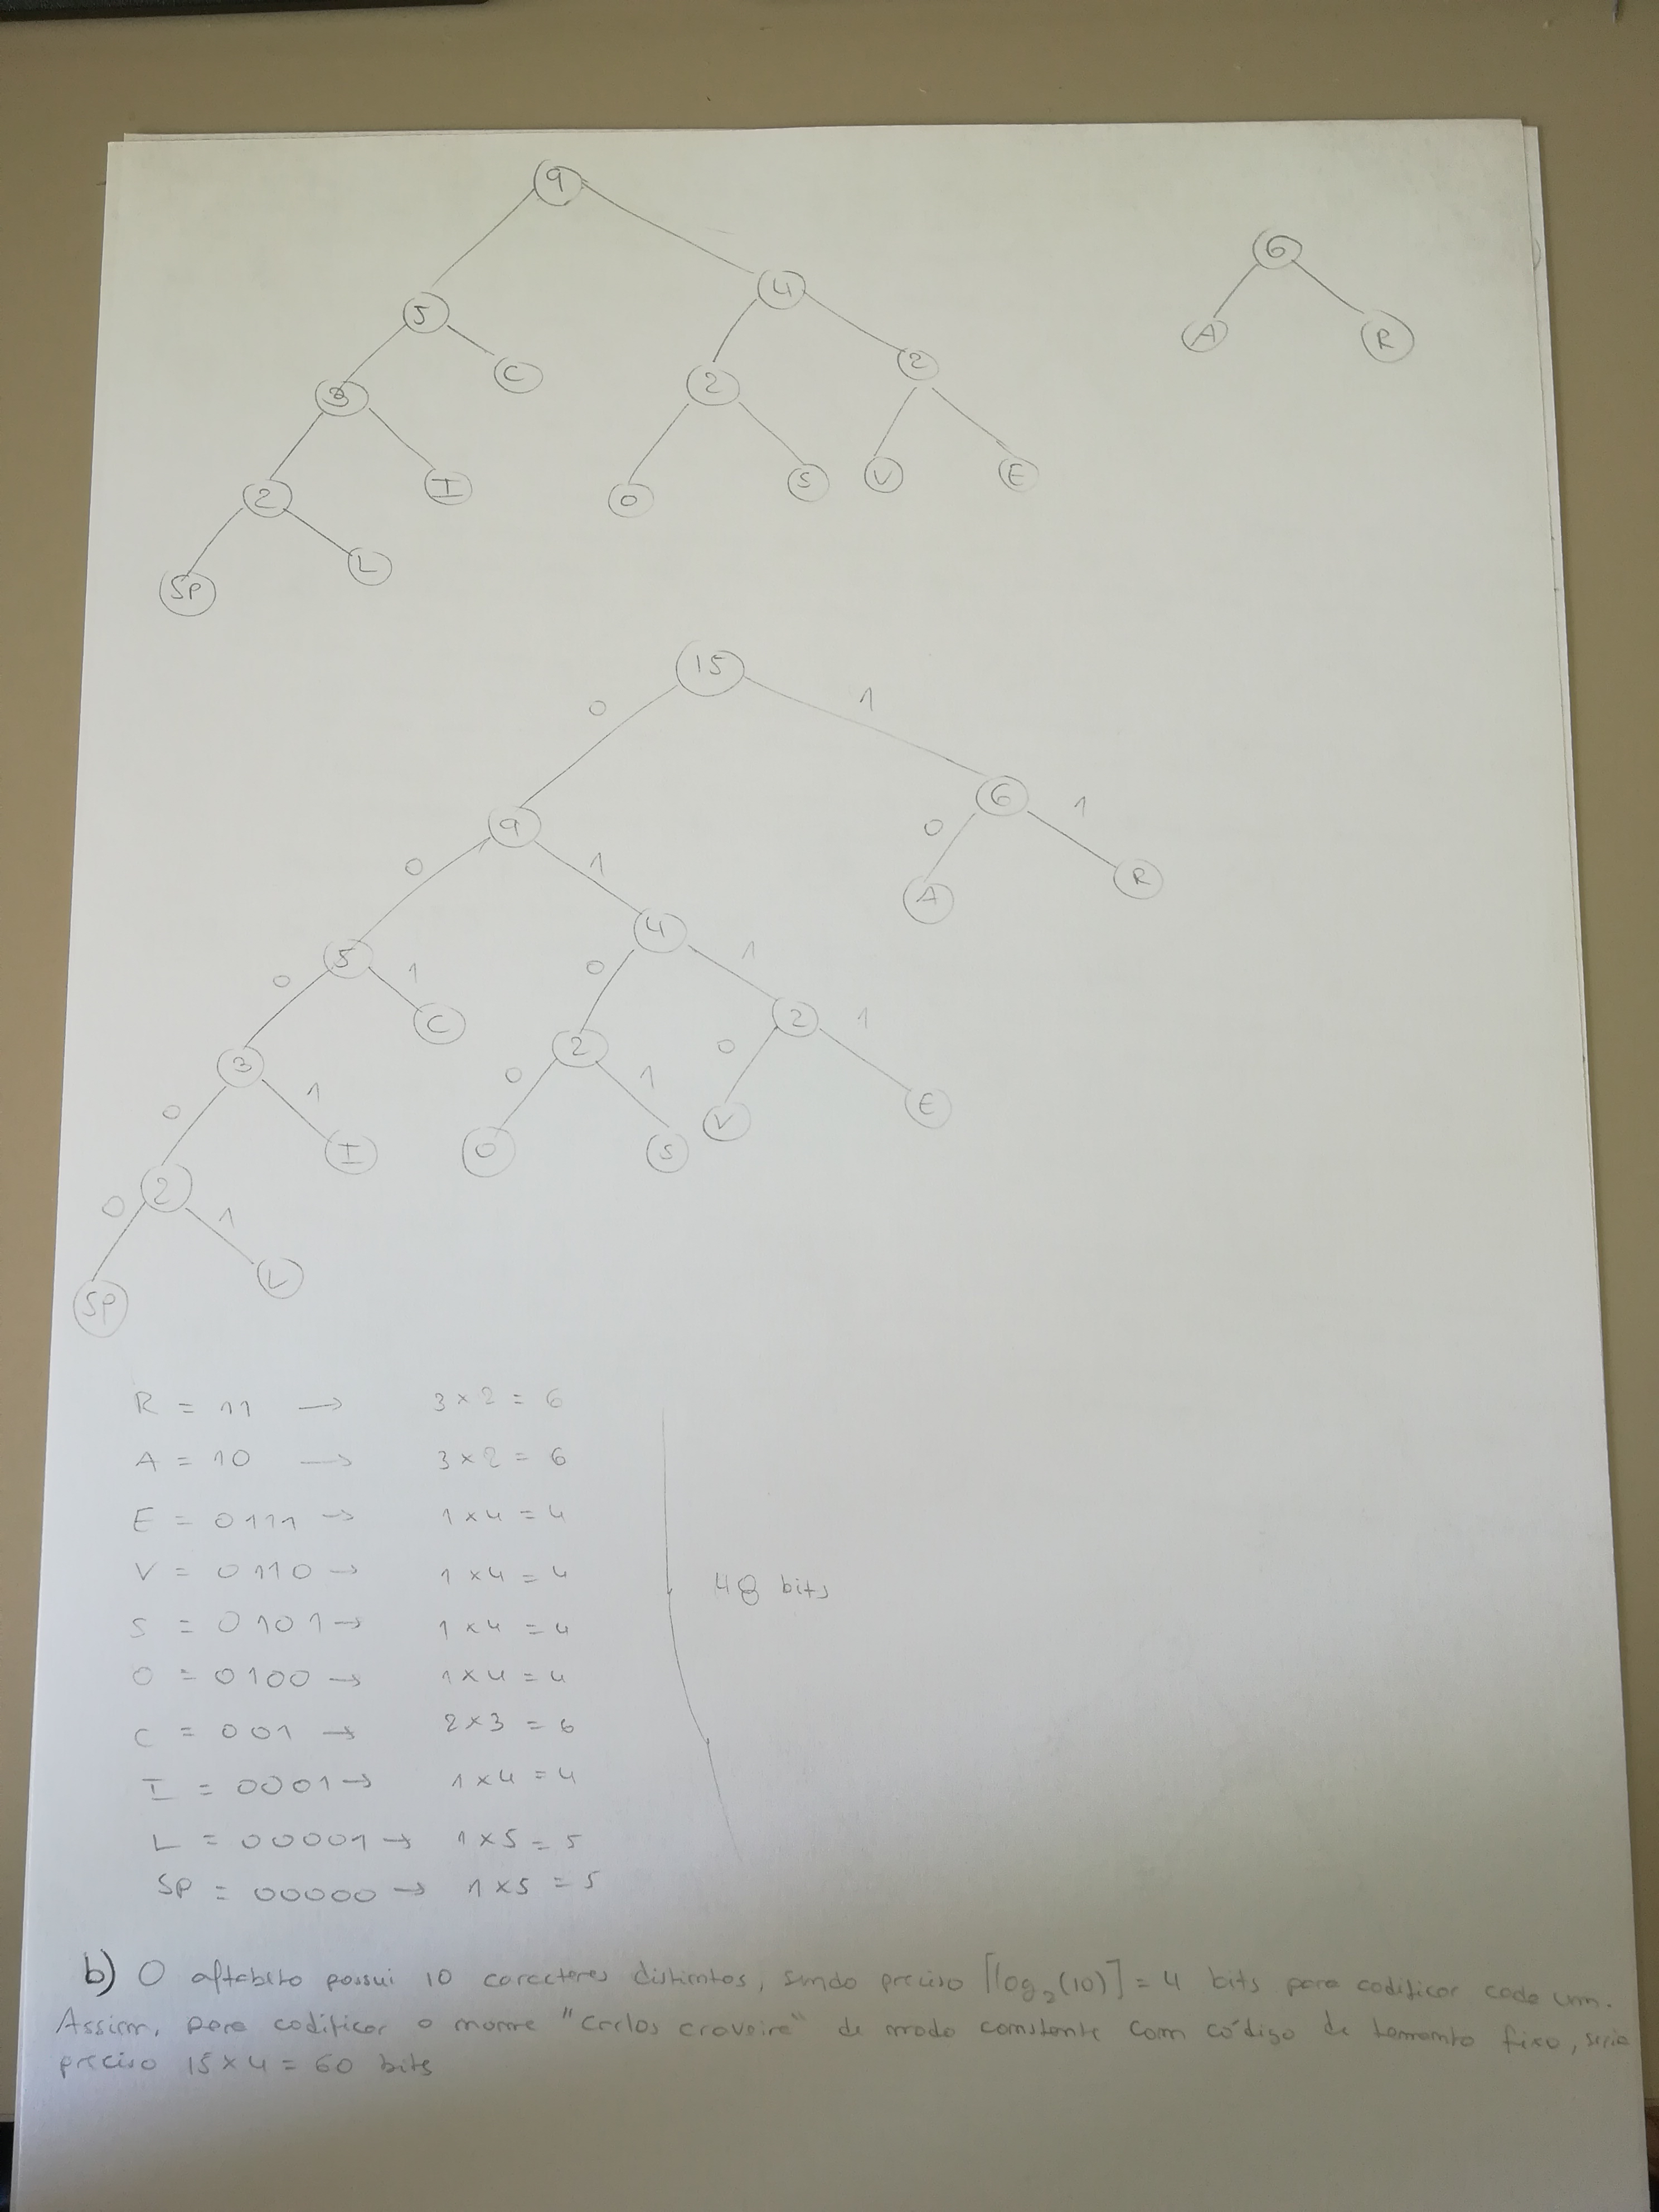 9
6
5
4
A
R
3
C
2
2
2
I
O
S
V
E
SP
L
15
0
1
9
6
0
1
0
1
A
R
5
4
0
1
0
1
3
C
2
2
0
1
0
1
0
1
2
I
O
S
V
E
0
1
SP
L
R = 11 → 3 × 2 = 6
A = 10 → 3 × 2 = 6
E = 0111 → 1 × 4 = 4
V = 0110 → 1 × 4 = 4
48 bits
S = 0101 → 1 × 4 = 4
O = 0100 → 1 × 4 = 4
C = 001 → 2 × 3 = 6
I = 0001 → 1 × 4 = 4
L = 00001 → 1 × 5 = 5
SP = 00000 → 1 × 5 = 5
b) O alfabeto possui 10 caracteres distintos, sendo preciso ⌈log₂(10)⌉ = 4 bits para codificar cada um.
Assim, para codificar o nome "Carlos craveira" de modo constante com código de tamanho fixo, seria
preciso 15 × 4 = 60 bits